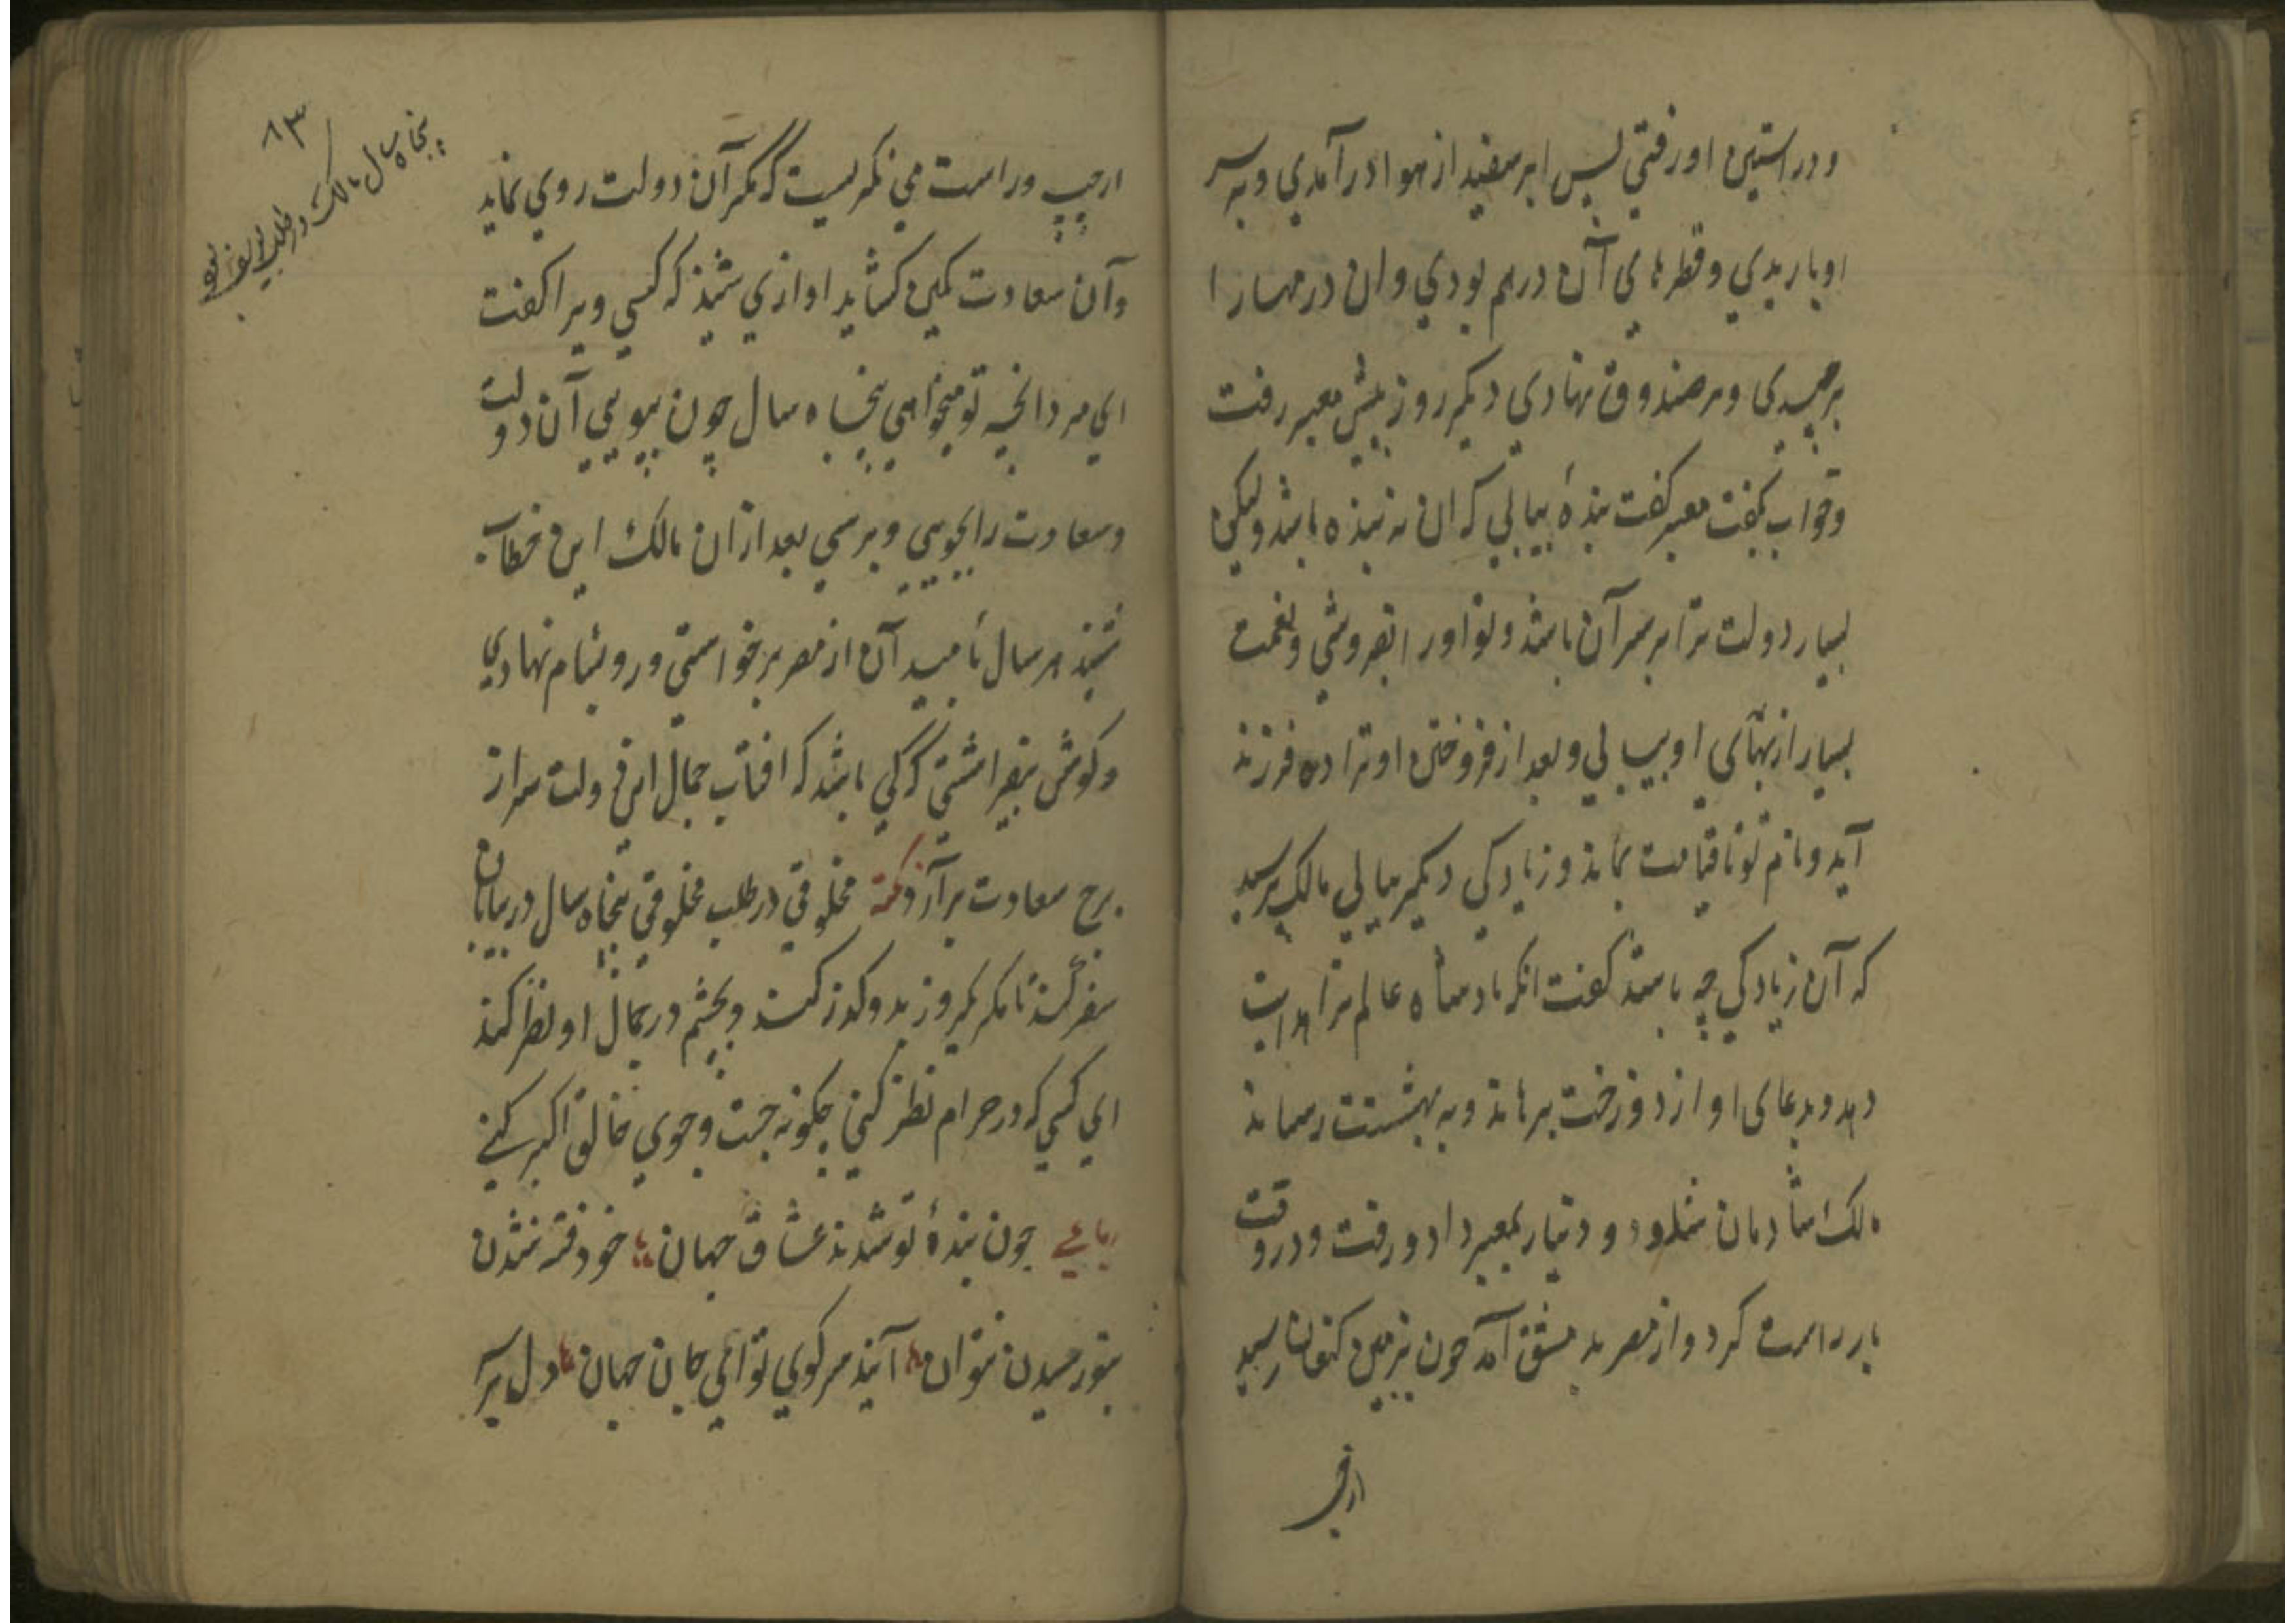 و در استین او رفتي پس ابر سفید از هوا در آمدي و به سر
او باریدي و قطرهاي آن درهم بودي و ان درمهارا
برچیدي و بر صندوق نهادي دیگر روز پیش معبر رفت
و خواب بگفت معبر گفت بندهٔ بیابي که ان نه بنده باشد ولیکن
بسیار دولت ترا بر سر آن باشد و تو او را بفروشي و نعمت
بسیار از بهاي او بیابي و بعد از فروختن او ترا ده فرزند
آید و نام تو تا قیامت بماند و زیادگي دیگر بیابي مالک پرسید
که آن زیادگي چه باشد گفت انکه بادشاه عالم ترا هدایت
دهد و بدعاي او از دوزخت برهاند و به بهشتت رساند
مالک شادمان شد و دو دینار بمعبر داد و رفت و در وقت
بار راست کرد و از مصر به دمشق آمد چون بزمین کنعان رسید
از چپ
۸۳
پنجاه سال مالک در طلب یوسف بود
از چپ و راست مي نگریست که مگر آن دولت روي نماید
و آن سعادت کمین کشاید اوازي شنید که کسي ویرا گفت
اي مرد انچه تو میخواهي پنجاه سال چون بپویي آن دولت
و سعادت را بجویي و برسي بعد ازان مالک این خطاب
شنید هر سال بامید آن از مصر برخواستي و رو بشام نهادي
و گوش بفراشتي که کي باشد که افتاب جمال این دولت سر از
برج سعادت برآرد نکته مخلوقي در طلب مخلوقي پنجاه سال در بیابان
سفر کند تا مگر یکروز بدو گذر کند و بچشم در جمال او نظر کند
اي کسي که در حرام نظر کني چگونه جست و جوي خالق اکبر کني
رباعي چون بندهٔ تو شدند عشاق جهان خود فتنه شدن
بتو رسیدن نتوان آیند سر کوي تو اي جان جهان دل پر